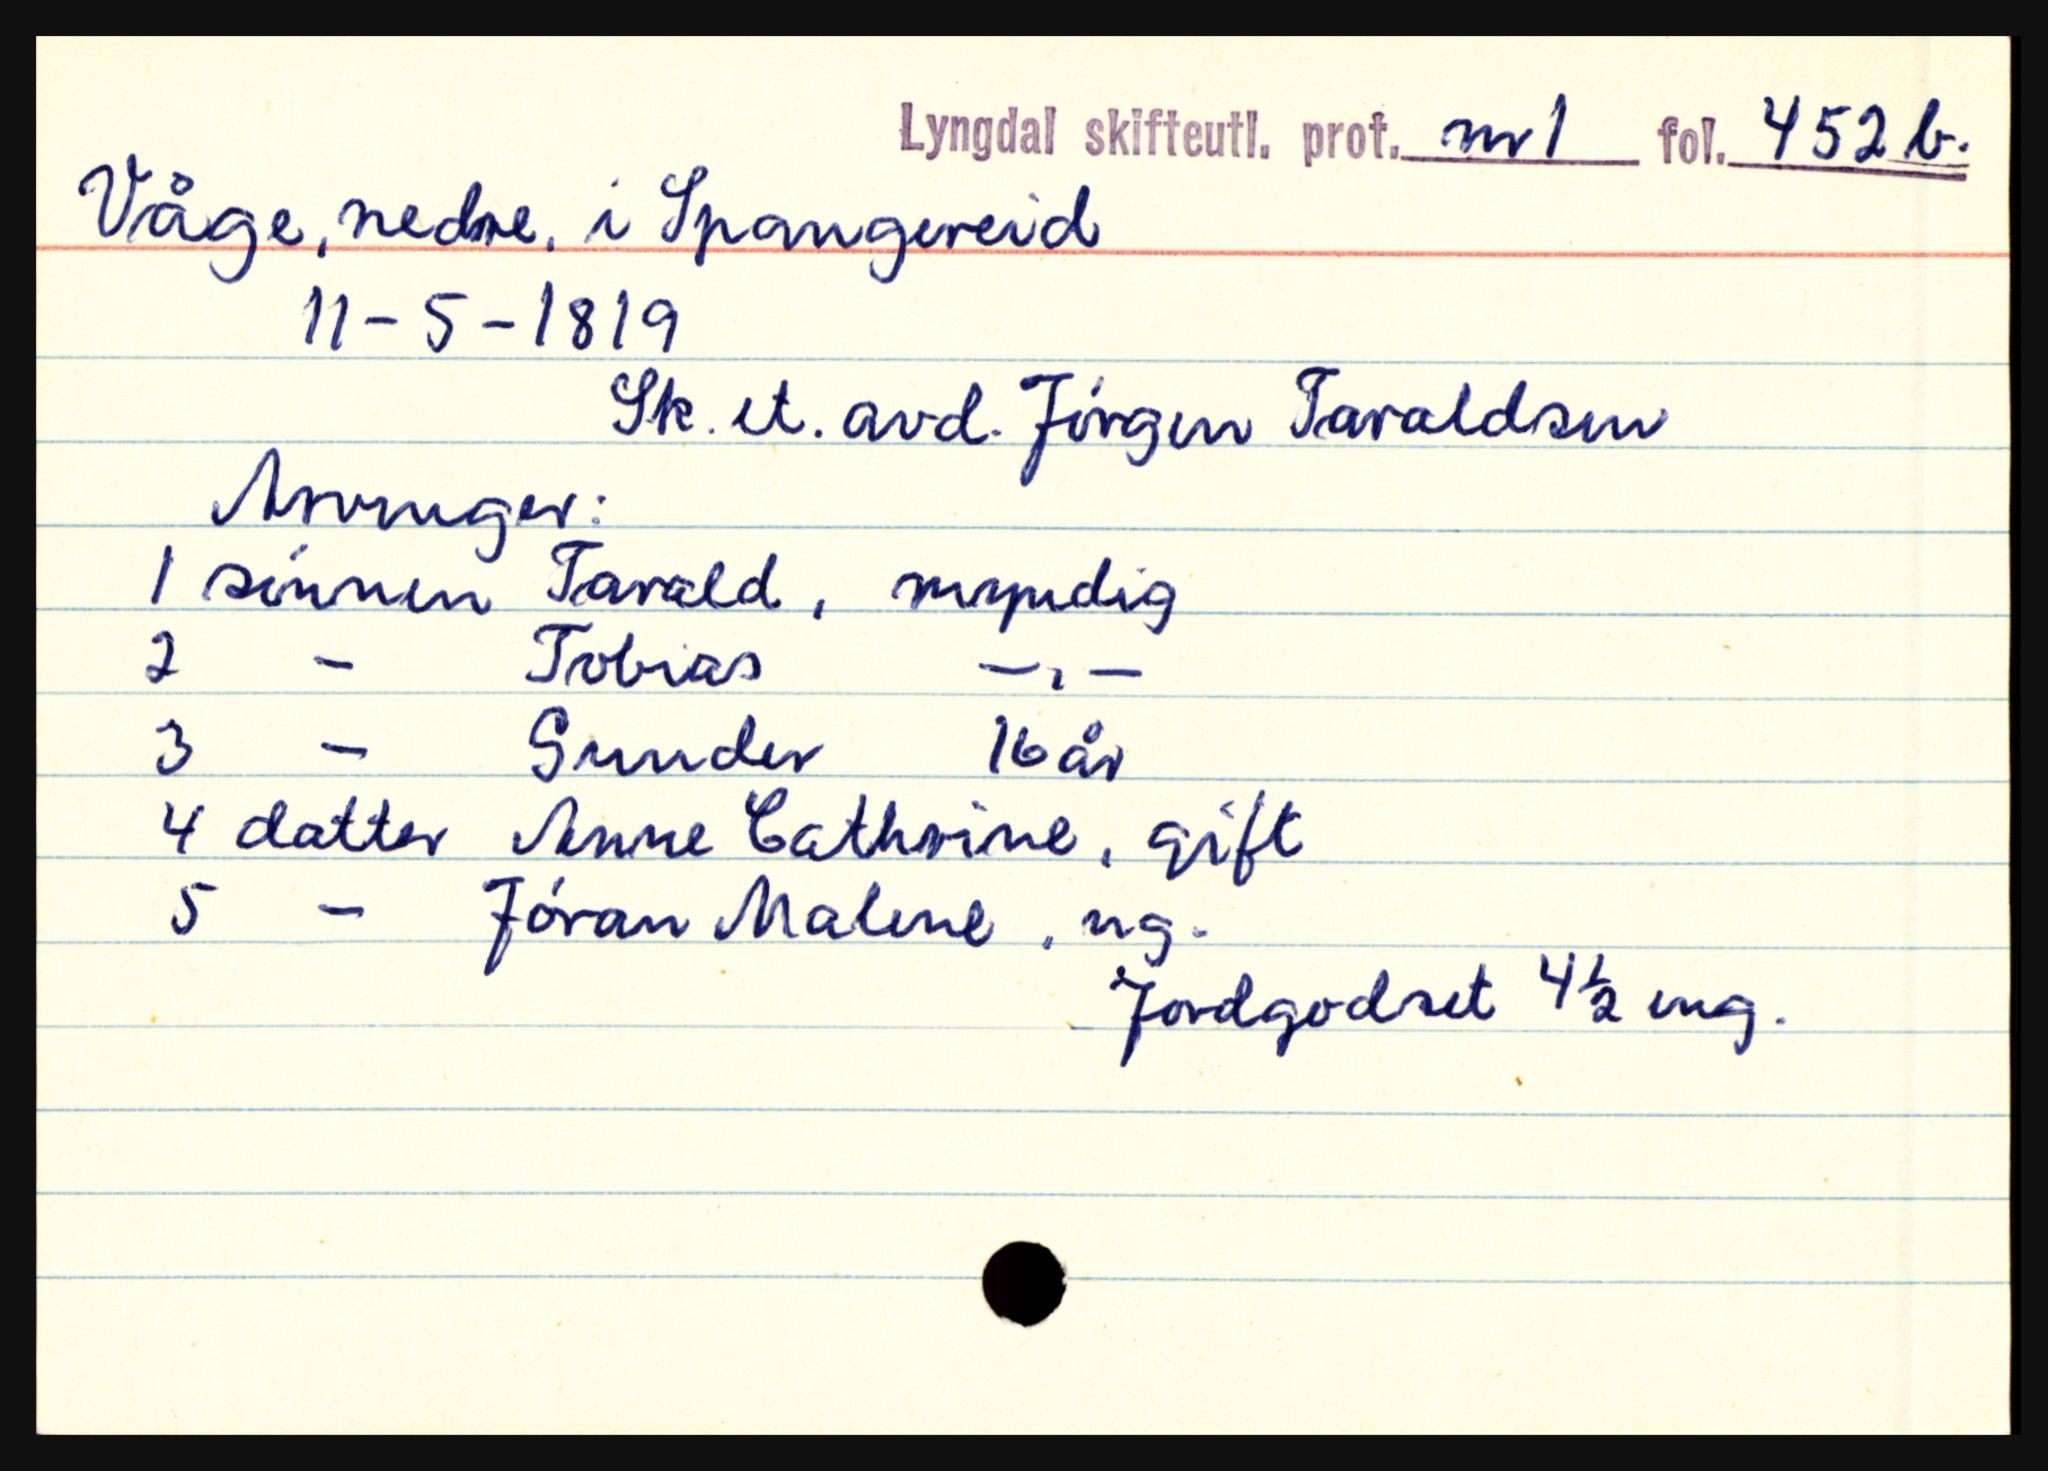 Lyngdal skifteutl. prot. nr 1 fol. 452 b.
Våge, nedre, i Spangereid
11-5-1819
Sk. et. avd. Jórgen Taraldsen
Arvinger:
1 sónnen Tarald, myndig
2 - Tobias -,-
3 - Gunder 16 år
4 datter Anne Cathrine, gift
5 - Jóran Malene, ug.
Jordgodset 4½ eng.